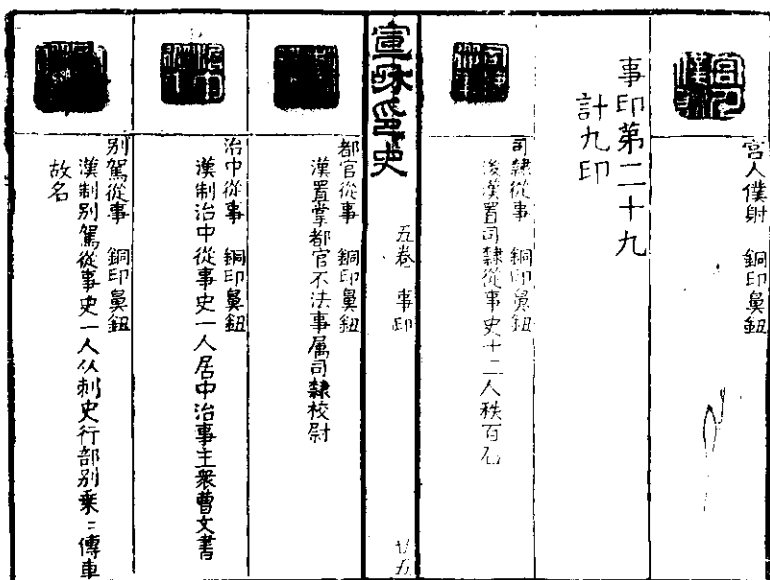 宮人僕射　銅印鼻鈕
事印第二十九
計九印
司隸從事　銅印鼻鈕
後漢置司隸從事史十二人秩百石
宣和印史
五卷　事印
廿五
都官從事　銅印鼻鈕
漢置掌都官不法事属司隸校尉
治中從事　銅印鼻鈕
漢制治中從事史一人居中治事主衆曹文書
别駕從事　銅印鼻鈕
漢制别駕從事史一人从刺史行部别乘〻傳車
故名